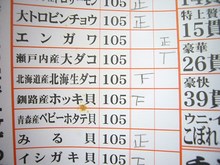 大トロビンチョウ 105 正
エンガワ 105 正
瀬戸内産大ダコ 105
北海道産北海生ダコ 105 下
釧路産ホッキ貝 105 下
青森産ベビーホタテ貝 105
みる貝 105 正
イシガキ貝 105 下
15貫
豪華
26貫
豪快
39貫
ウニ・イ
こぼれ